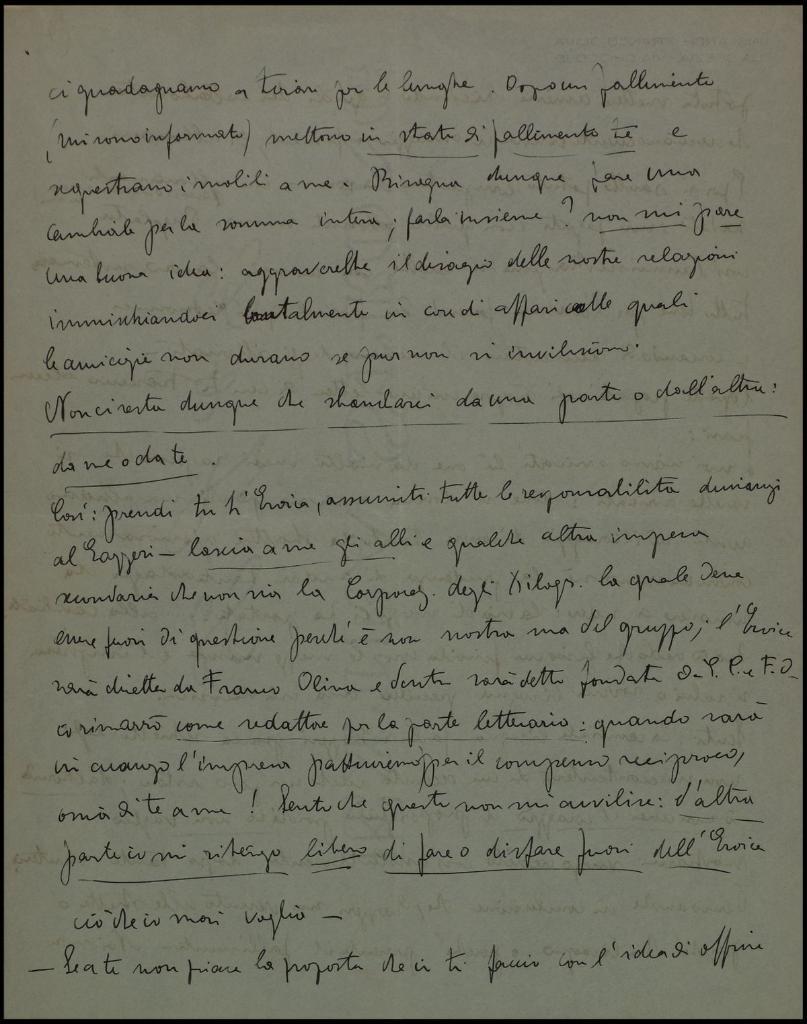 ci guadagnamo a tirare per le lunghe. Dopo un fallimento
(mi sono informato) mettono in stato di fallimento te e
sequestrano i mobili a me. Bisogna dunque fare una
cambiale per la somma intera; farla insieme? non mi pare
una buona idea: aggraverebbe il disagio delle nostre relazioni
immischiandoci brutalmente in cose di affari alle quali
le amicizie non durano se pur non si inviliscono.
Non ci resta dunque che sbandarci da una parte o dall'altra:
da me o da te.
Così: prendi tu L'Eroica, assumiti tutte le responsabilità dinanzi
al Gazzeri — lascia a me gli albi e qualche altra impresa
secondaria che non sia la Corporaz. degli Xilogr. la quale deve
essere fuori di questione perchè è non nostra ma del gruppo; l'Eroica
sarà diretta da Franco Oliva e dentro sarà detto fondata da
io rimarrò come redattore per la parte letteraria: quando sarà
in auge l'impresa pattuiremo per il compenso reciproco,
ossia di te a me! Senti che questo non mi avvilisce: d'altra
parte io mi ritengo libero di fare o disfare fuori dell'Eroica
ciò che io mai voglia —
— Se a te non piace la proposta che io ti faccio con l'idea di offrire